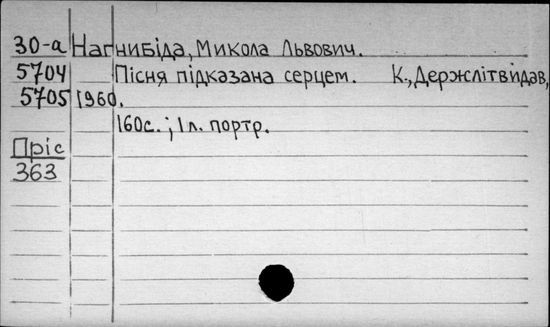 30-а Нагнибіда, Микола Львович.
5704 Пісня підказана серцем. К., Держлітвидав,
5705 1960.
160с. ; 1 л. портр.
Пріс
363